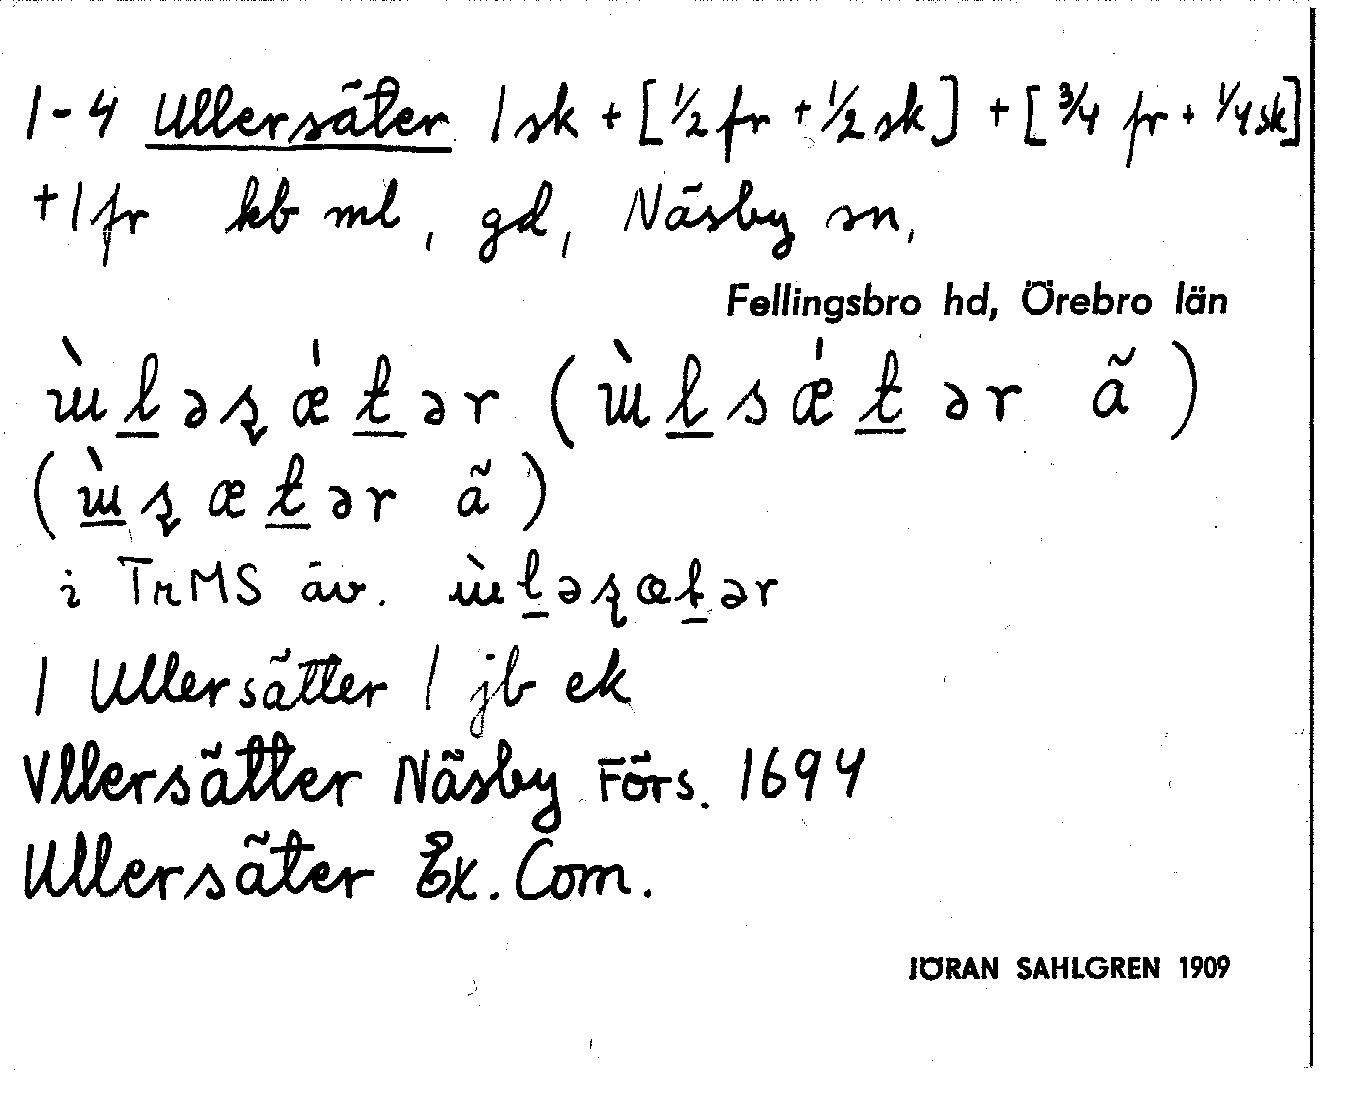 1-4 Ullersäter 1 sk + [1/2 fr + 1/2 sk] + [3/4 fr + 1/4 sk]
+ 1 fr kb ml, gd, Näsby sn,
Fellingsbro hd, Örebro län
ɯ̀l̲əʂǽt̲ər (ɯ̀l̲sǽt̲ər ã)
(ɯ̲̀ʂæt̲ər ã)
i TrMS äv. ɯ̀l̲əʂæt̲ər
1 Ullersätter 1 jb ek
Vllersätter Näsby Förs. 1694
Ullersäter Ex. Com.
JÖRAN SAHLGREN 1909